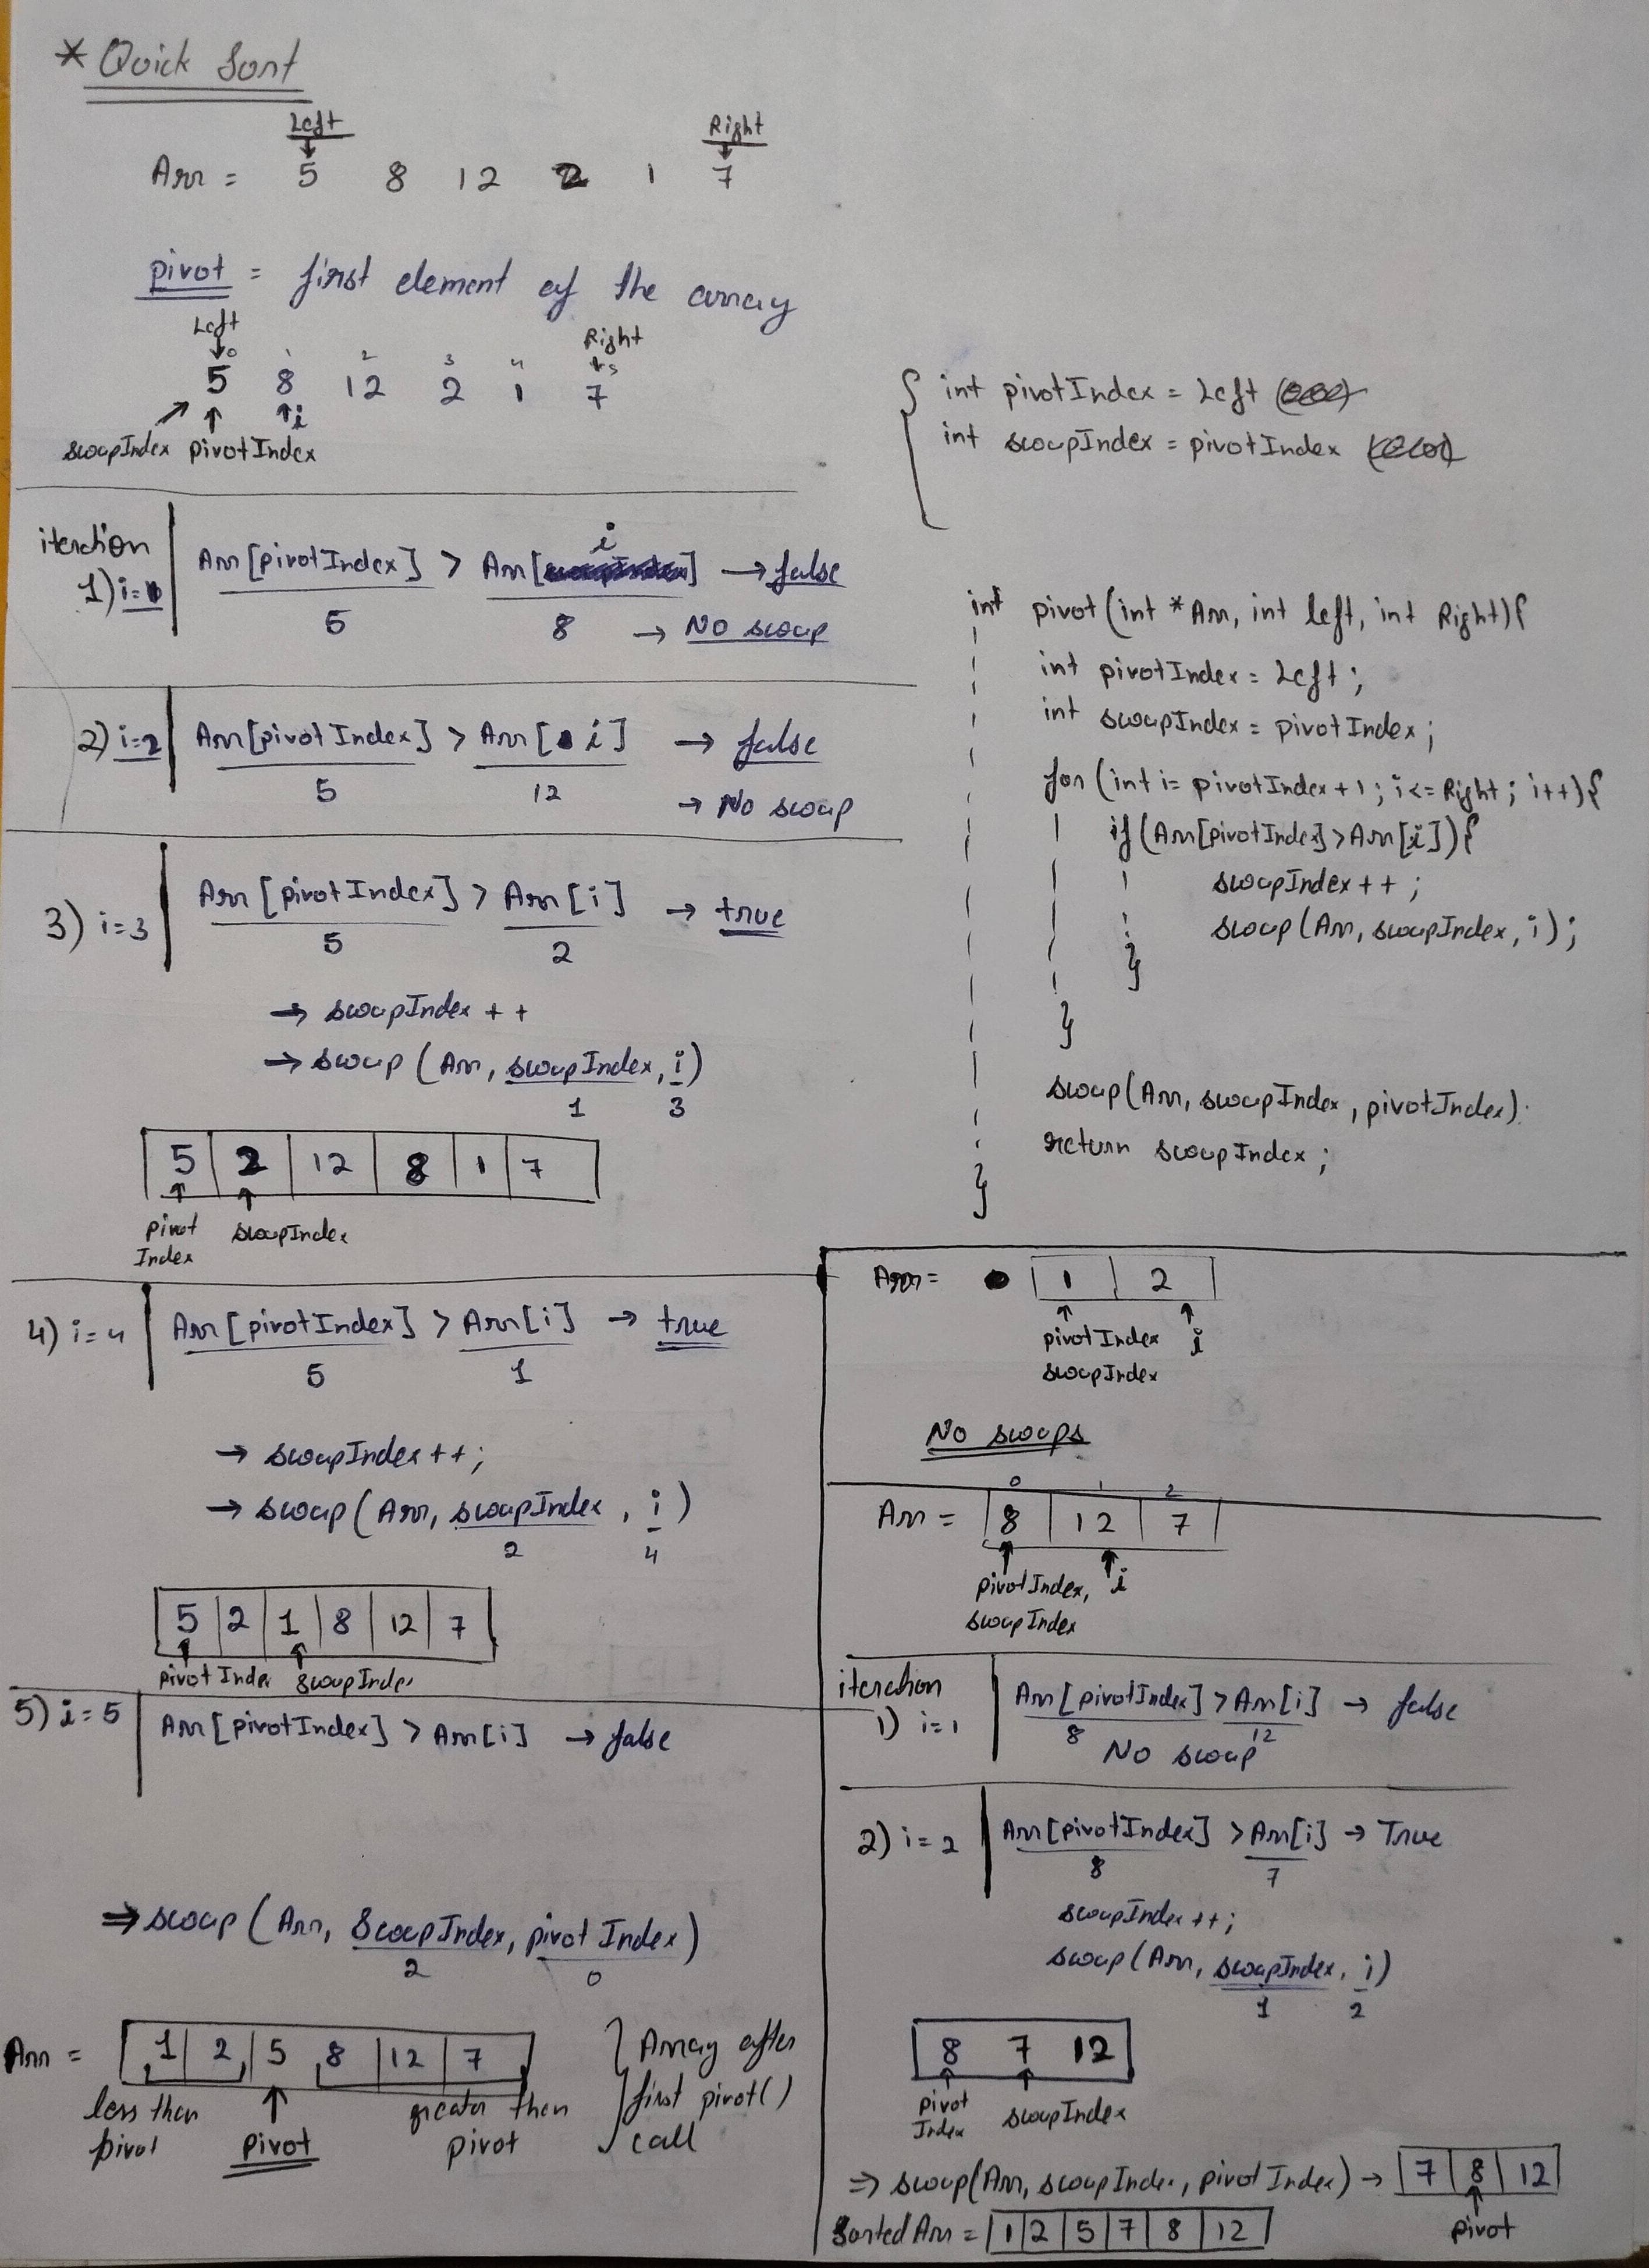 * Quick Sort
Left Right
Arr = 5 8 12 2 1 7
pivot = first element of the array
Left Right
0 1 2 3 4 5
5 8 12 2 1 7
i
swapIndex pivotIndex
iteration
1) i=1 Arr[pivotIndex] > Arr[i] → false
5 8 → No swap
2) i=2 Arr[pivotIndex] > Arr[i] → false
5 12 → No swap
3) i=3 Arr[pivotIndex] > Arr[i] → true
5 2
→ swapIndex++
→ swap (Arr, swapIndex, i)
1 3
5 2 12 8 1 7
pivot Index swapIndex
4) i=4 Arr[pivotIndex] > Arr[i] → true
5 1
→ swapIndex++;
→ swap (Arr, swapIndex, i)
2 4
5 2 1 8 12 7
pivotIndex swapIndex
5) i=5 Arr[pivotIndex] > Arr[i] → false
⇒ swap (Arr, swapIndex, pivotIndex)
2 0
Arr = 1 2 5 8 12 7
less then pivot
pivot
greater then pivot
} Array after
first pivot()
call
{ int pivotIndex = Left
int swapIndex = pivotIndex
int pivot(int *Arr, int left, int Right){
int pivotIndex = Left;
int swapIndex = pivotIndex;
for (int i= pivotIndex+1; i<=Right; i++){
if(Arr[pivotIndex]>Arr[i]){
swapIndex++;
swap(Arr, swapIndex, i);
}
}
swap(Arr, swapIndex, pivotIndex);
return swapIndex;
}
Arr = 1 2
pivotIndex i
swapIndex
No swaps
0 1 2
Arr = 8 12 7
pivotIndex, i
swapIndex
iteration
1) i=1 Arr[pivotIndex] > Arr[i] → false
8 12
No swap
2) i=2 Arr[pivotIndex] > Arr[i] → True
8 7
swapIndex++;
swap(Arr, swapIndex, i)
1 2
8 7 12
pivot Index swapIndex
⇒ swap(Arr, swapIndex, pivotIndex) → 7 8 12
pivot
Sorted Arr = 1 2 5 7 8 12